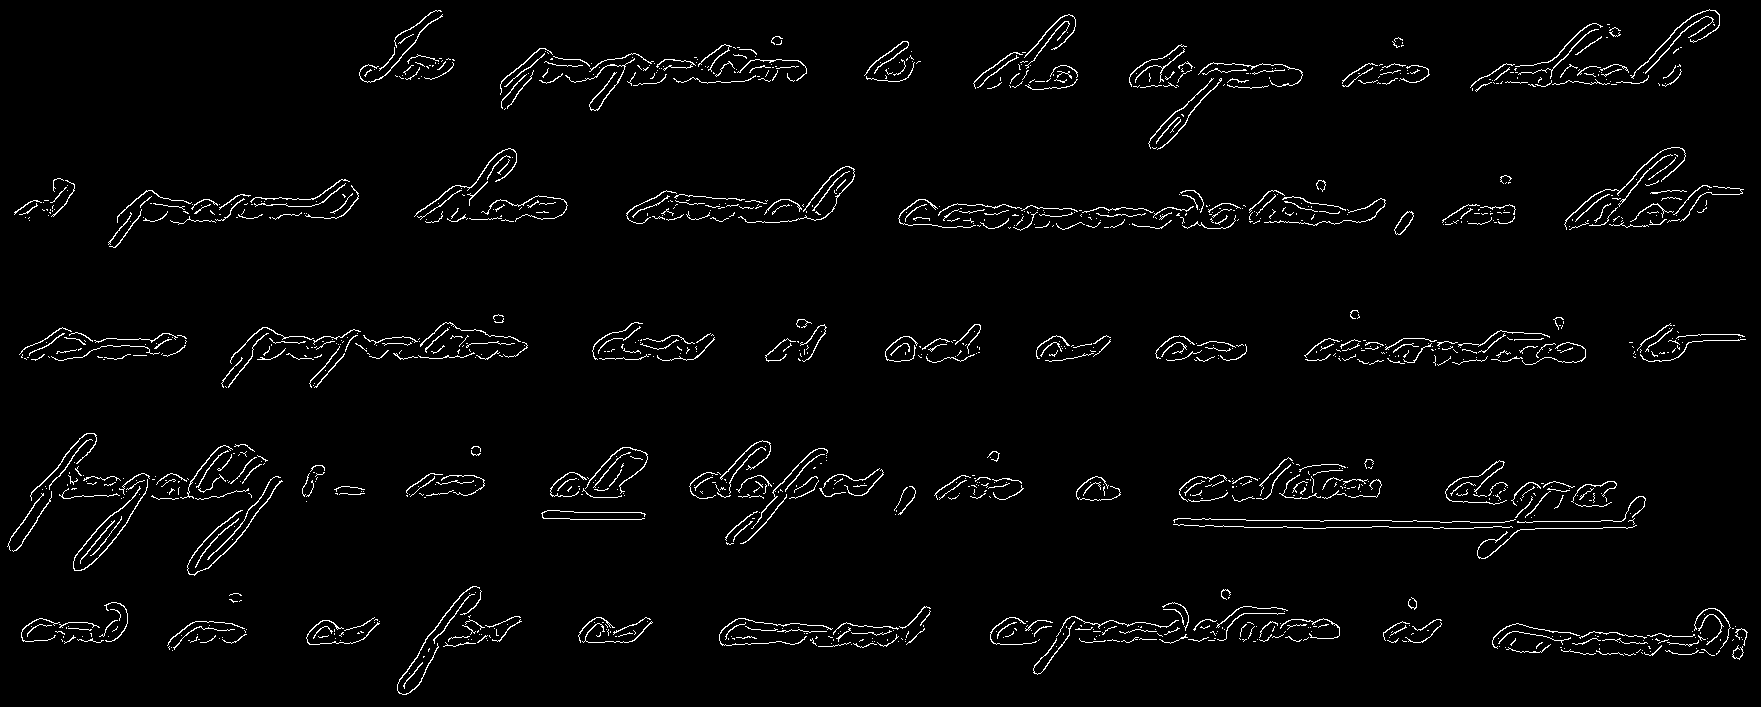 In proportion to the degree in which
it passes than annual accommodation, in that
same proportion does it act as an incentive to
frugality: - in all classes, in a certain degree,
and in as far as annual expenditure is concerned: